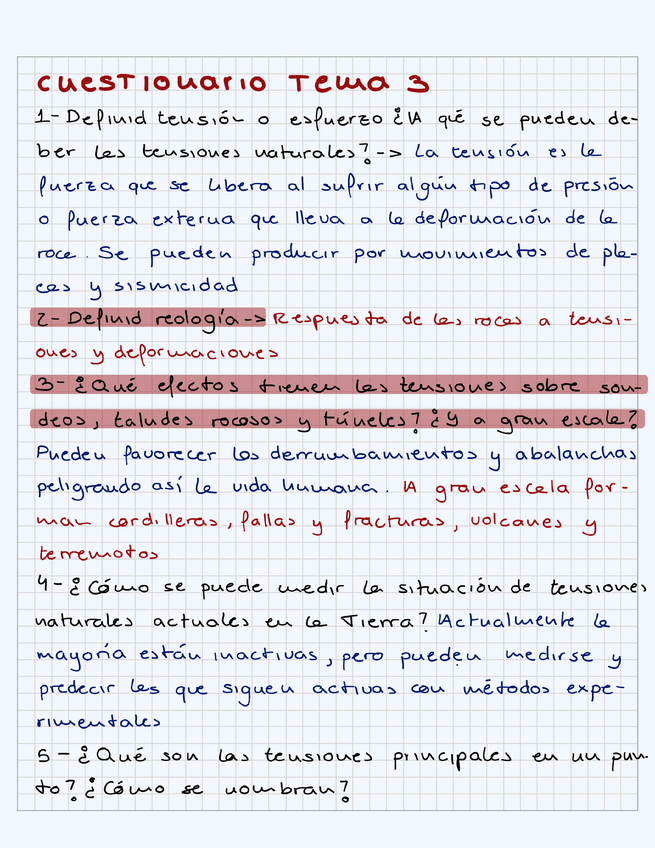 Cuestionario Tema 3
1- Definid tensión o esfuerzo ¿A qué se pueden de-
ber las tensiones naturales? -> La tensión es la
fuerza que se libera al sufrir algún tipo de presión
o fuerza externa que lleva a la deformación de la
roca. Se pueden producir por movimientos de pla-
cas y sismicidad
2- Definid reología -> Respuesta de las rocas a tensi-
ones y deformaciones
3- ¿Qué efectos tienen las tensiones sobre son-
deos, taludes rocosos y túneles? ¿Y a gran escala?
Pueden favorecer los derrumbamientos y abalanchas
peligrando así la vida humana. A gran escala for-
man cordilleras, fallas y fracturas, volcanes y
terremotos
4- ¿Cómo se puede medir la situación de tensiones
naturales actuales en la Tierra? Actualmente la
mayoría están inactivas, pero pueden medirse y
predecir las que siguen activas con métodos expe-
rimentales
5- ¿Qué son las tensiones principales en un pun-
to? ¿Cómo se nombran?